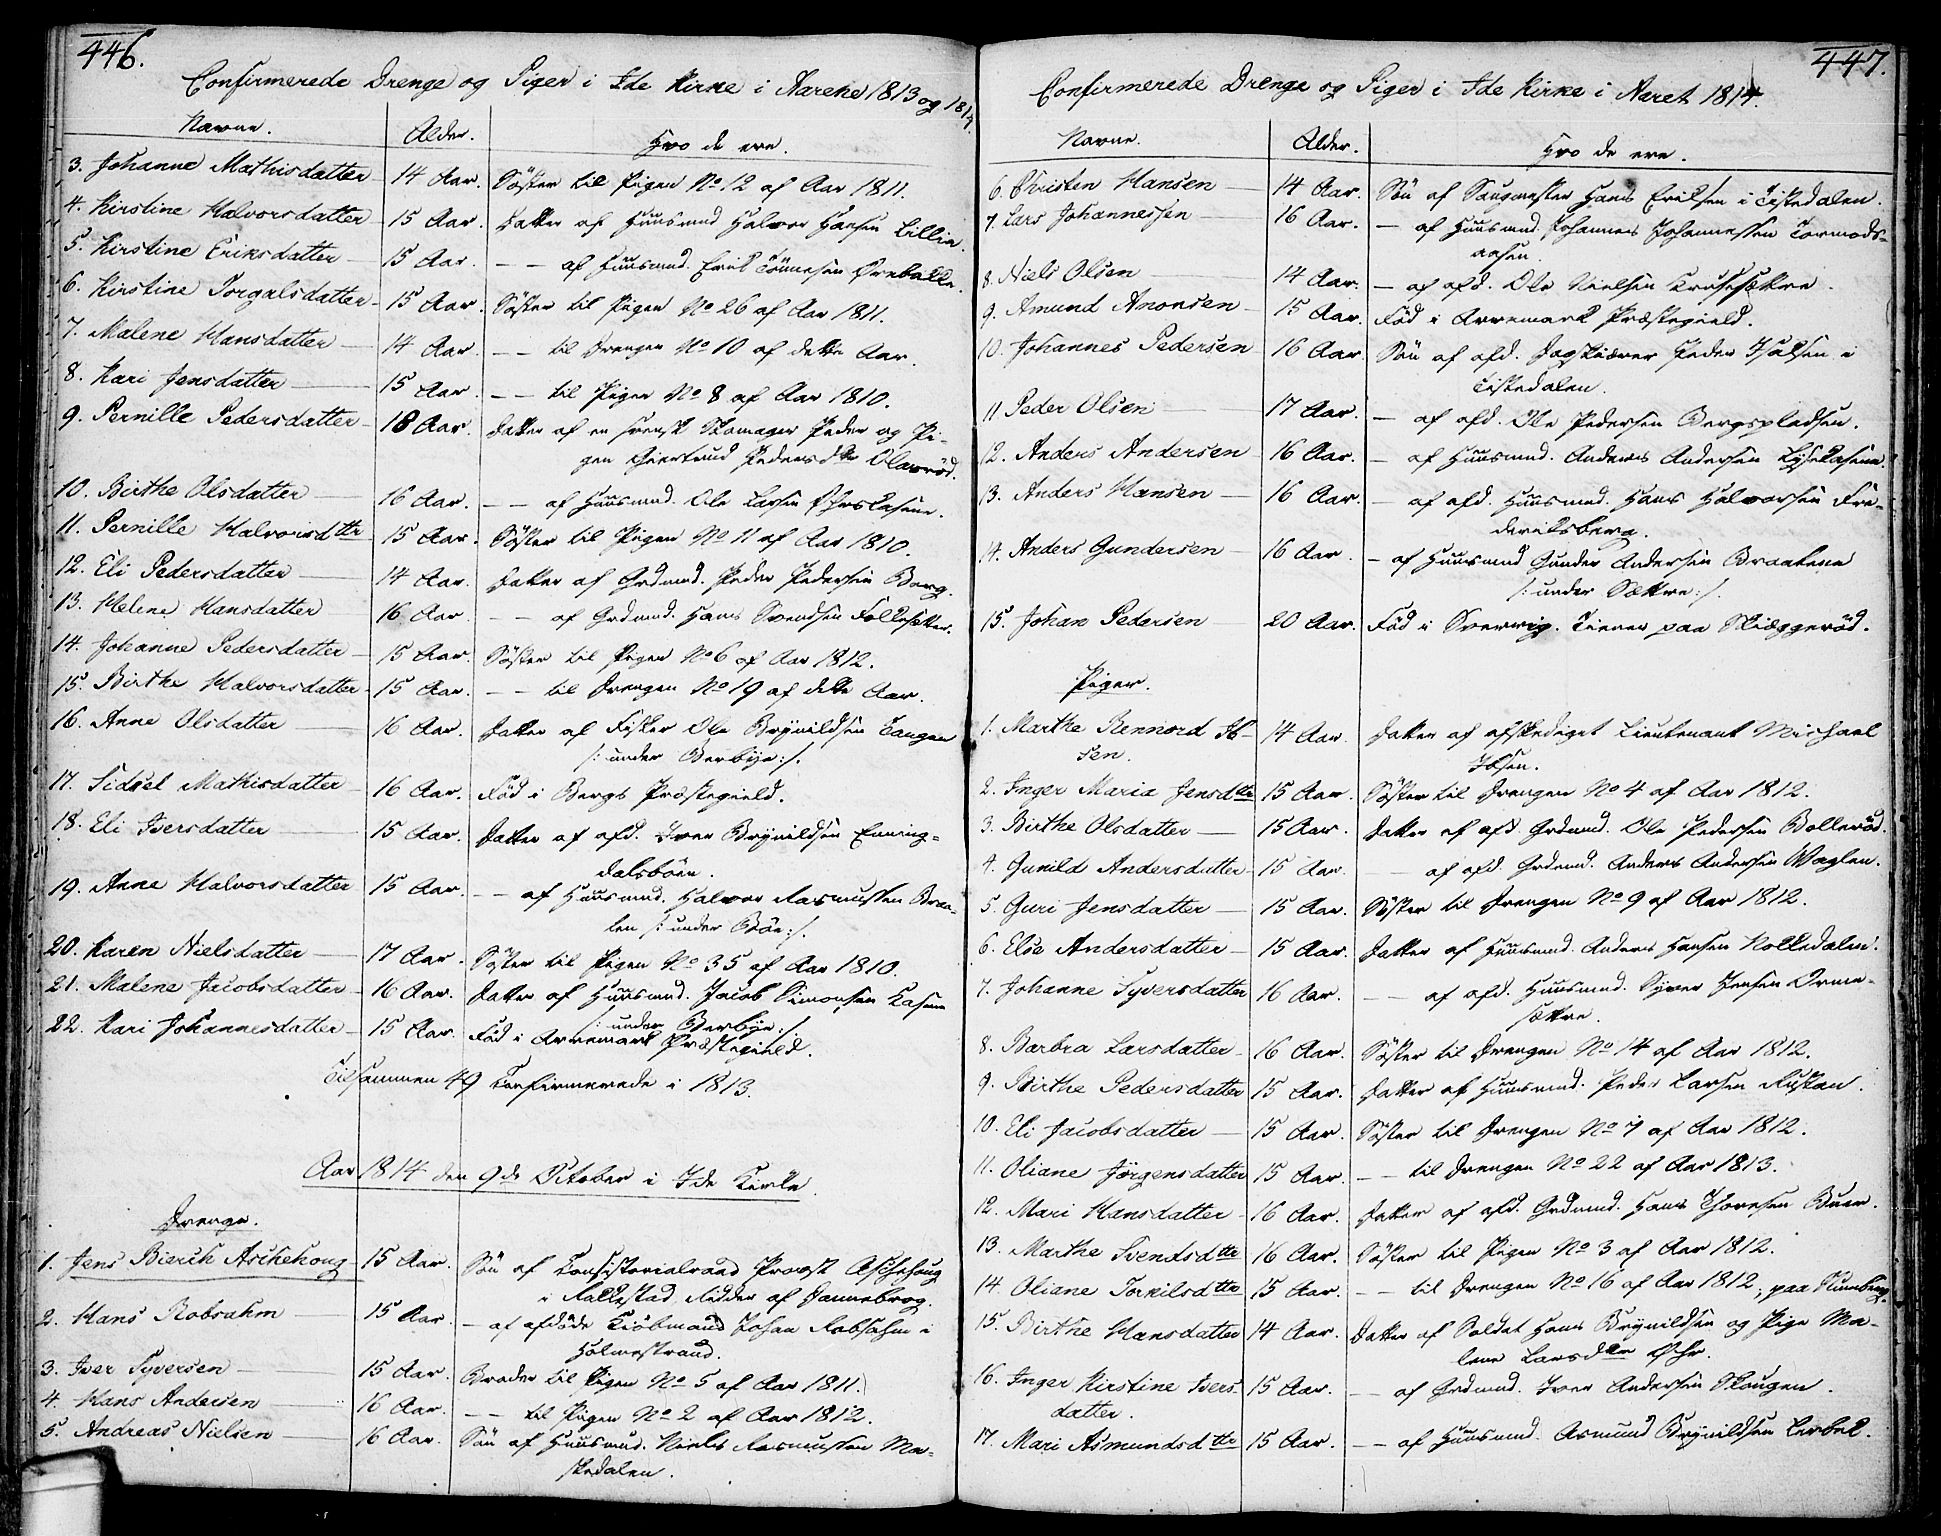 446.
Confirmerede Drenge og Piger i Ide Kirke i Aarene 1813 og 1814.
Navne. Alder. Hvo de ere.
3. Johanne Mathisdatter 14 Aar. Söster til Pigen No 12 af Aar 1811.
4. Kirstine Halvorsdatter 15 Aar. Datter af Huusmd Halvor Hansen Lillia.
5. Kirstine Eriksdatter 15 Aar. — — af Huusmd. Erik Tönnesen Ørebakke.
6. Kirstine Torgalsdatter 15 Aar. Söster til Pigen No 26 af Aar 1811.
7. Malene Hansdatter 14 Aar. — — til Drengen No 10 af dette Aar.
8. Kari Jensdatter 15 Aar. — — til Pigen No 8 af Aar 1810.
9. Pernille Pedersdatter 18 Aar. Datter af en svensk Skomager Peder og Pi-
gen Giertrud Pedersdtr Olavröd.
10. Birthe Olsdatter 16 Aar. — — af Huusmd. Ole Larsen
11. Pernille Halvorsdttr 15 Aar. Söster til Pigen No 11 af Aar 1810.
12. Eli Pedersdatter 14 Aar. Datter af Grdmd. Peder Pedersen Berg.
13. Helene Hansdatter 16 Aar. — — af Grdmd. Hans Svendsen Folkesetter.
14. Johanne Pedersdatter 15 Aar. Söster til Pigen No 6 af Aar 1812.
15. Birthe Halvorsdatter 15 Aar. — — til Drengen No 19 af dette Aar.
16. Anne Olsdatter 16 Aar. Datter af Fisker Ole Brynildsen Tangen
/: under Berbye :/.
17. Sidsel Mathisdatter 16 Aar. Föd i Bergs Præstegield.
18. Eli Iversdatter 15 Aar. Datter af afd. Iver Brynildsen Enning-
dalsböen.
19. Anne Halvorsdatter 15 Aar. — — af Huusmd. Halvor Rasmussen Braa-
ten /: under Böe :/.
20. Karen Nielsdatter 17 Aar. Söster til Pigen No 35 af Aar 1810.
21. Malene Jacobsdatter 16 Aar. Datter af Huusmd. Jacob Simonsen Kasene
/: under Berbye :/.
22. Kari Johannesdatter 15 Aar. Föd i Arremark Præstegield.
Tilsammen 49 Confirmerede i 1813.
Aar 1814 den 9de October i Ide Kirke.
Drenge.
1. Jens Bierch Aschehoug 15 Aar. Sön af Consistorialraad Provst Aschehoug
i Rakkestad, Ridder af Dannebrog.
2. Hans Robsahm 15 Aar. — af afdöde Kiöbmand Johan Robsahm i
Holmestrand.
3. Iver Syversen 15 Aar. Broder til Pigen No 5 af Aar 1811.
4. Hans Andersen 16 Aar. — — til Pigen No 2 af Aar 1812.
5. Andreas Nielsen 16 Aar. Sön af Huusmd. Niels Rasmussen Ma-
skedalen.
447.
Confirmerede Drenge og Piger i Ide Kirke i Aaret 1814.
Navne. Alder. Hvo de ere.
6. Christen Hansen 14 Aar. Sön af Saugmester Hans Eriksen i Tistedalen.
7. Lars Johannessen 16 Aar. — af Huusmd. Johannes Johannessen Tormods-
aasen.
8. Niels Olsen 14 Aar. — af afd. Ole Nielsen Krusesættre.
9. Amund Anonsen 15 Aar. Föd i Arremark Præstegield.
10. Johannes Pedersen 16 Aar. Sön af afd. Dagskiærer Peder Isaksen i
Tistedalen.
11 Peder Olsen 17 Aar. — af afd. Ole Pedersen Bergspladsen.
12. Anders Andersen 16 Aar. — af Huusmd. Anders Andersen Lysekasene.
13. Anders Hansen 16 Aar. — af afd. Huusmd. Hans Halvorsen Fre-
deriksberg.
14. Anders Gundersen 16 Aar. — af Huusmd Gunder Andersen Braatene
/: under Sættre :/.
15. Johan Pedersen 20 Aar. Föd i Sverrig. Tiener paa Skiæggeröd.
Piger.
1. Marthe Rennord Ib-
sen. 14 Aar. Datter af afskediget Lieutenant Michael
Ibsen.
2. Inger Maria Jensdttr 15 Aar. Söster til Drengen No 4 af Aar 1812.
3. Birthe Olsdatter 15 Aar. Datter af afd. Grdmd. Ole Pedersen Bolleröd.
4. Gunild Andersdatter 15 Aar. — af afd. Grdmd. Anders Andersen Waglen.
5. Guri Jensdatter 15 Aar. Söster til Drengen No 9 af Aar 1812.
6. Else Andersdatter 15 Aar. Datter af Huusmd. Anders Hansen Holtedalen.
7. Johanne Syversdatter 16 Aar. — — af afd. Huusmd. Syver Jensen Orme-
sættre.
8. Barbra Larsdatter 16 Aar. Söster til Drengen No 14 af Aar 1812.
9. Birthe Pedersdatter 15 Aar. Datter af Huusmd. Peder Larsen Rustan.
10. Eli Jacobsdatter 15 Aar. Söster til Drengen No 7 af Aar 1812.
11. Oliane Jörgensdatter 15 Aar. — — til Drengen No 22 af Aar 1813.
12. Mari Hansdatter 16 Aar. Datter af afd. Grdmd. Hans Thoresen Buer.
13. Marthe Svendsdttr 16 Aar. Söster til Pigen No 3 af Aar 1812.
14. Oliane Torkilsdttr 15 Aar. — — til Drengen No 16 af Aar 1812, paa
15. Birthe Hansdatter 14 Aar. Datter af Soldat Hans Brynildsen og Pige Ma-
lene Larsdtr Øhr.
16. Inger Kirstine Ivers-
datter. 15 Aar. — — af Grdmd. Iver Andersen Skougen.
17. Mari Asmundsdttr 15 Aar. — — af Huusmd. Asmund Brynildsen Lerbek.